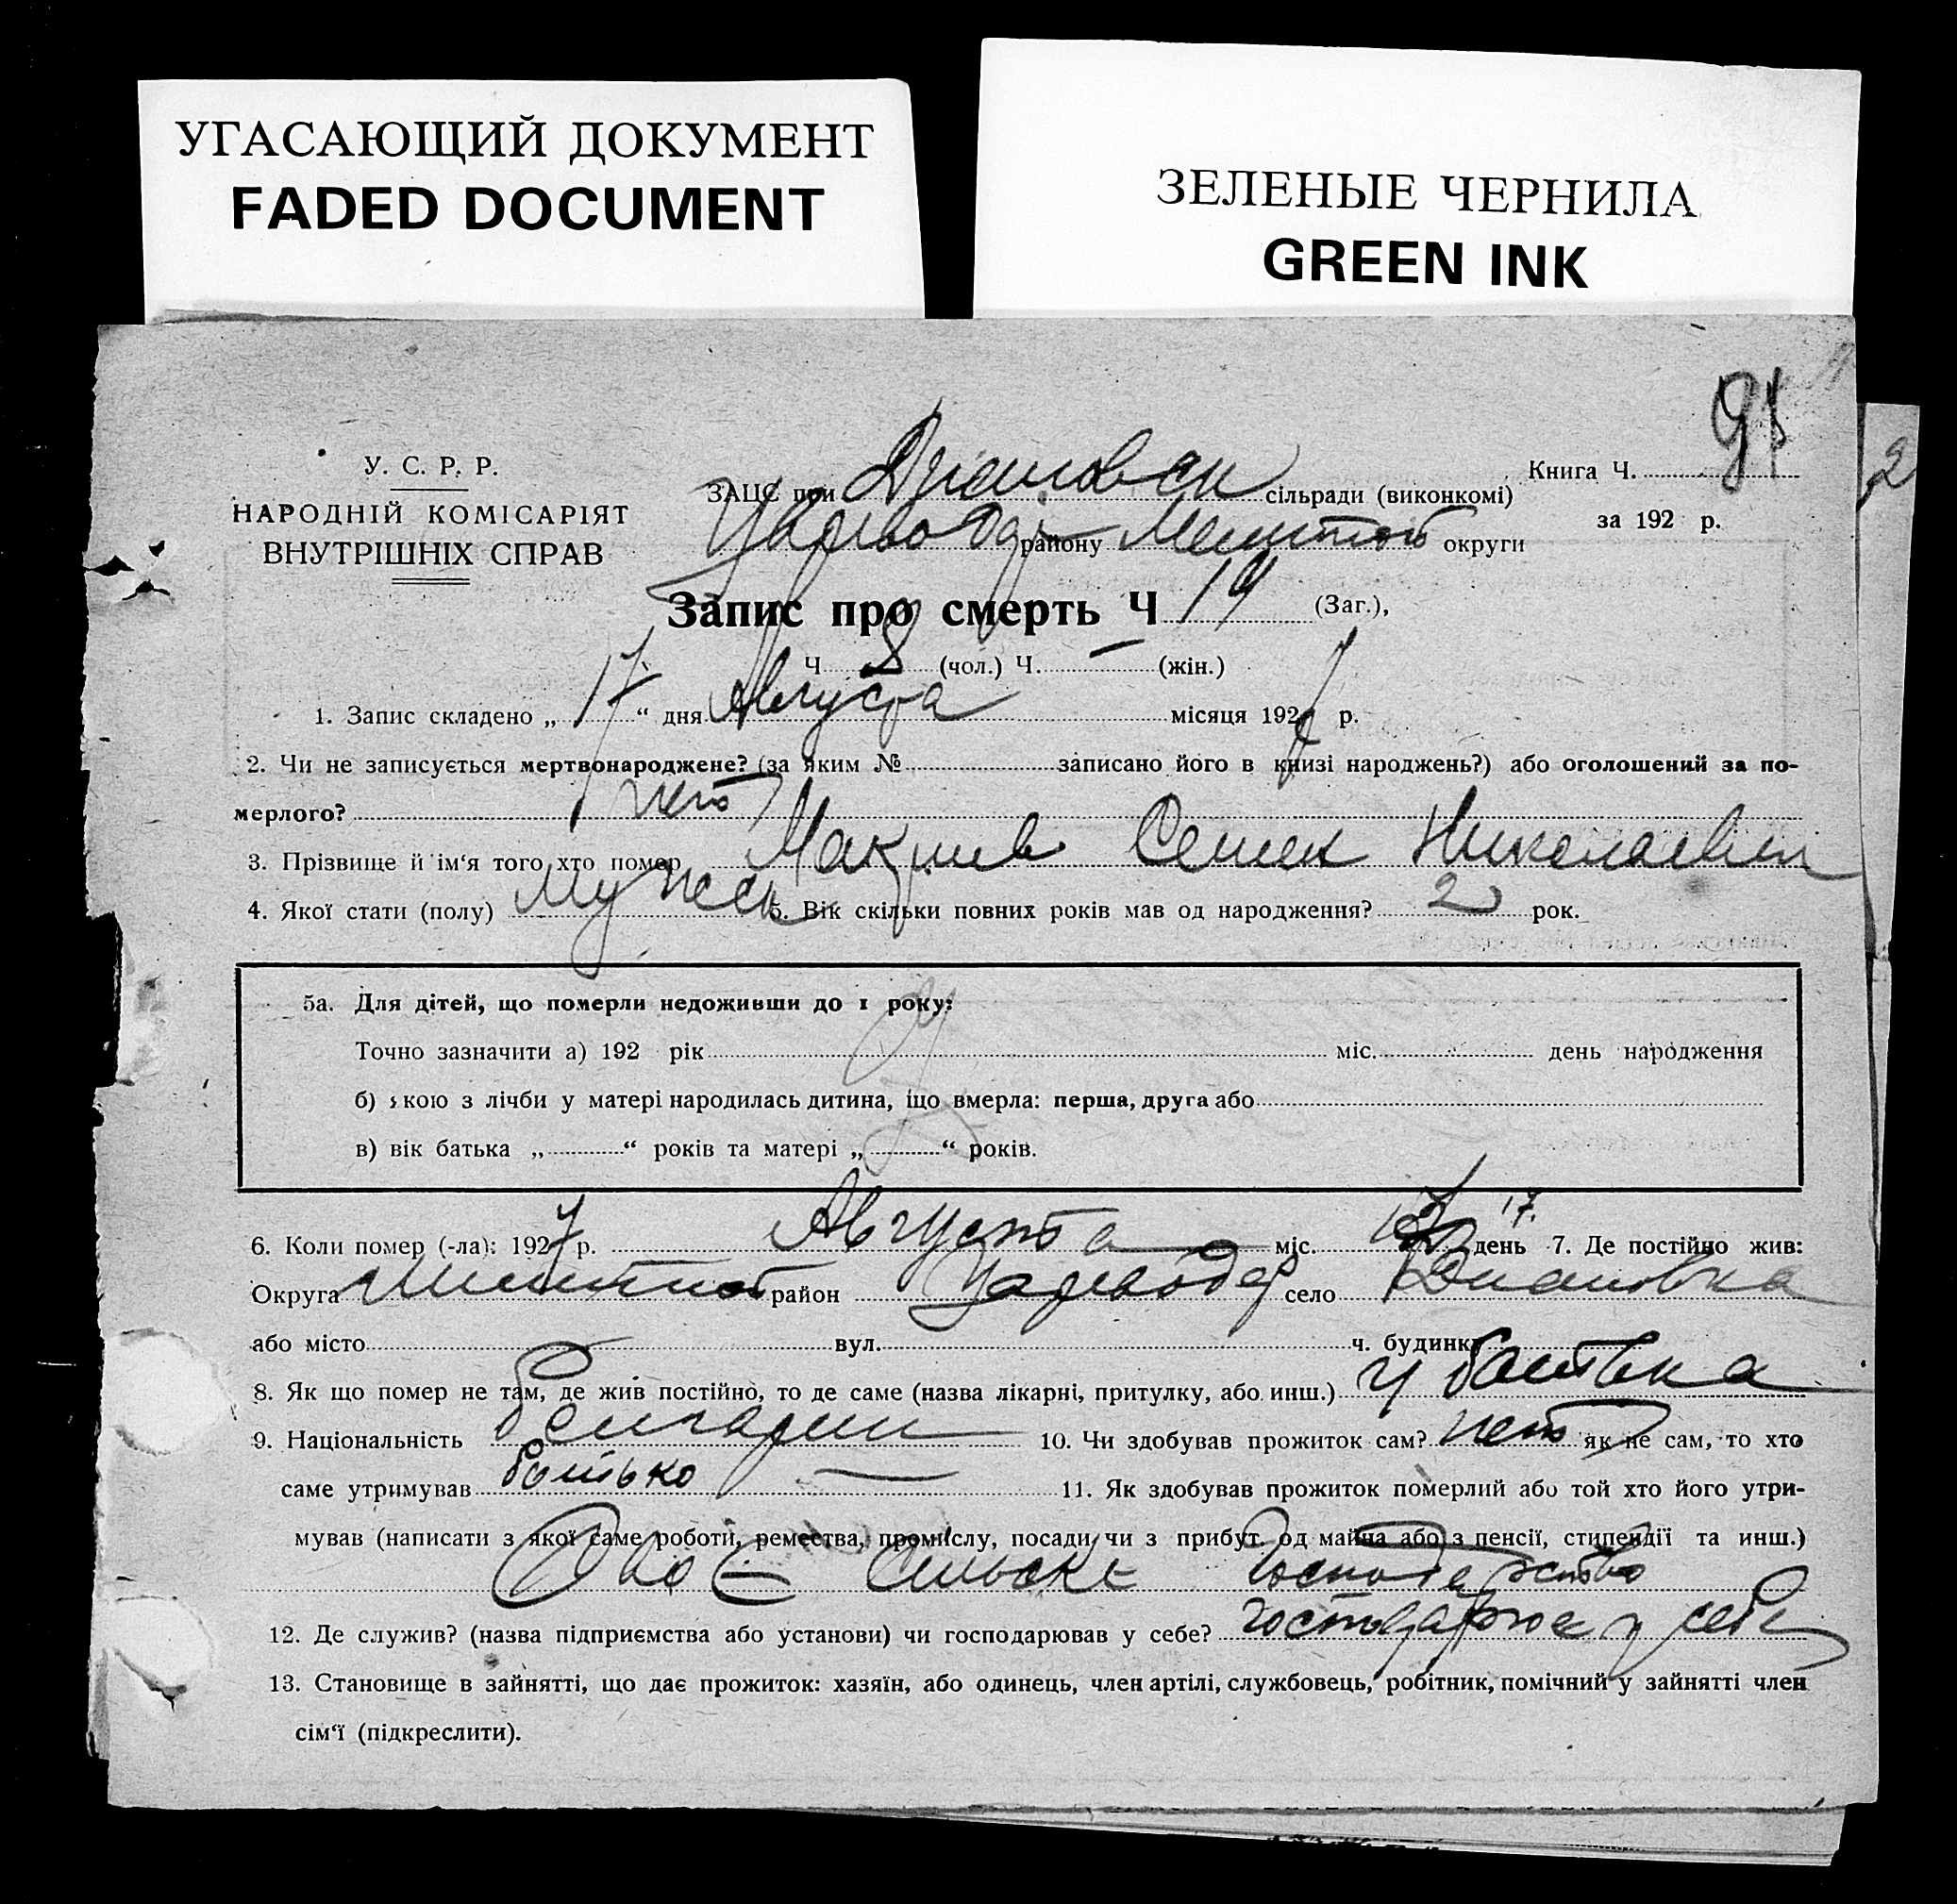 УГАСАЮЩИЙ ДОКУМЕНТ
FADED DOCUMENT
ЗЕЛЕНЫЕ ЧЕРНИЛА
GREEN INK
У. С. Р. Р.
НАРОДНІЙ КОМІСАРІЯТ
ВНУТРІШНІХ СПРАВ
Книга Ч.
за 192 р.
ЗАЦС при Диановск сільради (виконкомі)
Царевод району Мелитоп округи
Запис про смерть Ч 14 (Заг.),
Ч 8 (чол.) Ч. — (жін.)
1. Запис складено „ 17 “ дня Августа місяця 1927 р.
2. Чи не записується мертвонароджене? (за яким № записано його в книзі народжень?) або оголошений за по-
мерлого? нет
3. Прізвище й ім‘я того хто помер Семен Николаевич
4. Якої стати (полу) Мужеск 5. Вік скільки повних років мав од народження? 2 рок.
5а. Для дітей, що померли недоживши до 1 року:
Точно зазначити а) 192 рік міс. день народження
б) якою з лічби у матері народилась дитина, що вмерла: перша, друга або
в) вік батька „ “ років та матері „ “ років.
6. Коли помер (-ла): 1927 р. Августа міс. 17. день 7. Де постійно жив:
Округа Мелитоп район Царевод село Диановка
або місто вул. ч. будинку
8. Як що помер не там, де жив постійно, то де саме (назва лікарні, притулку, або инш.) у батька
9. Національність болгарин 10. Чи здобував прожиток сам? нет як не сам, то хто
саме утримував батько 11. Як здобував прожиток померлий або той хто його утри-
мував (написати з якої саме роботи, ремества, промислу, посади чи з прибут. од майна або з пенсії, стипендії та инш.)
Сільске Господарство
12. Де служив? (назва підприємства або установи) чи господарював у себе? господарює у себе
13. Становище в зайнятті, що дає прожиток: хазяїн, або одинець, член артілі, службовець, робітник, помічний у зайнятті член
сім‘ї (підкреслити).